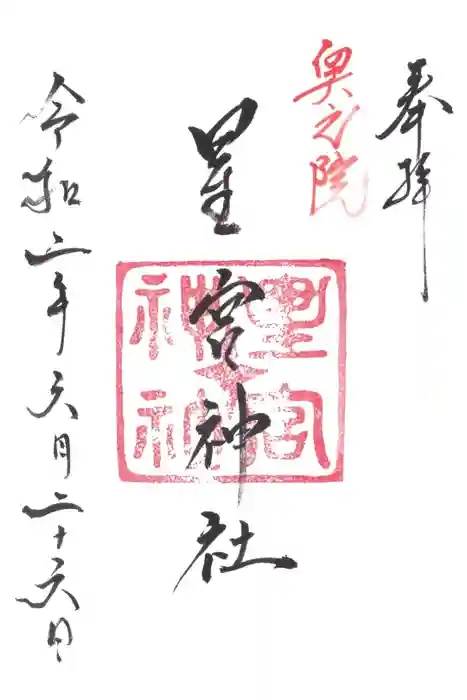 奉拝
奥之院
星宮神社
星宮
神社
令和二年六月二十六日